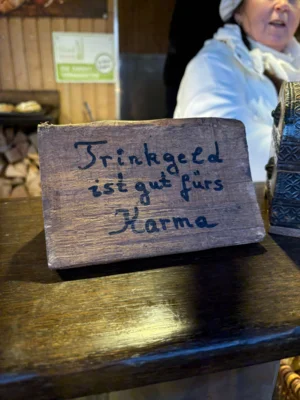 Trinkgeld
ist gut fürs
Karma